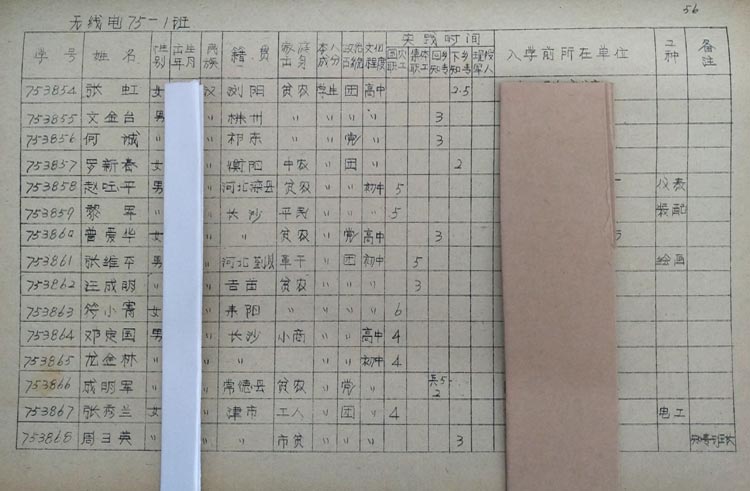 56
无线电75-1班
学号 姓名 性别 出生年月 民族 籍贯 家庭出身 本人成分 政治面貌 文化程度 实践时间 入学前所在单位 工种 备注
国家职工 集体职工 回乡知青 下乡知青 现役军人
753854 张虹 女 汉 浏阳 贫农 学生 团 高中 2.5
753855 文金台 男 〃 株州 〃 〃 〃 〃 3
753856 何诚 〃 〃 祁东 〃 〃 党 〃 3
753857 罗新春 女 〃 衡阳 中农 〃 团 〃 2
753858 赵旺平 男 〃 河北滦县 贫农 〃 〃 初中 5 仪表
753859 黎军 〃 〃 长沙 平民 〃 〃 〃 5 装配
753860 曾爱华 女 〃 〃 贫农 〃 党 高中 3
753861 张维平 男 〃 河北 革干 〃 团 初中 5 绘画
753862 汪成明 〃 〃 贫农 〃 〃 〃 3
753863 符小 女 〃 耒阳 〃 〃 〃 〃 6
753864 邓定国 男 〃 长沙 小商 〃 〃 高中 4
753865 龙金林 〃 〃 〃 〃 〃 〃 初中 4
753866 成明军 〃 〃 常德县 贫农 〃 党 〃 2
753867 张秀兰 女 〃 津市 工人 〃 团 〃 4 电工
753868 周 英 〃 〃 〃 市贫 〃 〃 〃 3